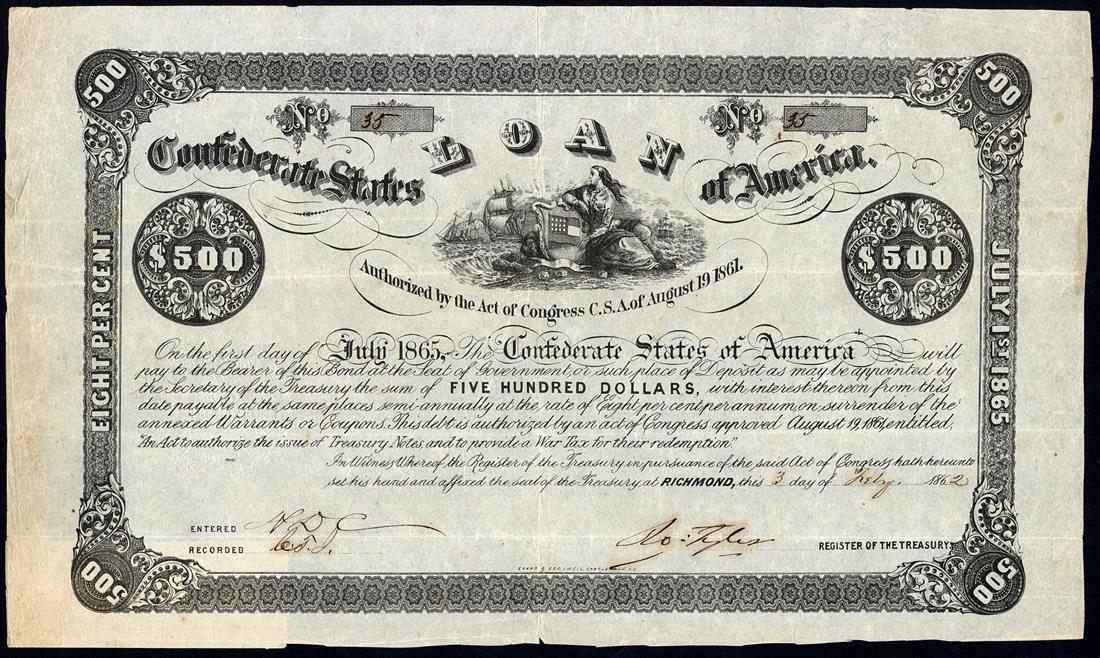 500
500
No 35
No 35
LOAN
Confederate States
of America.
$500
$500
EIGHT PER CENT
JULY 1ST 1865
Authorized by the Act of Congress C.S.A. of August 19 1861.
On the first day of July 1865, The Confederate States of America will
pay to the Bearer of this Bond at the Seat of Government, or such place of Deposit as may be appointed by
the Secretary of the Treasury the sum of FIVE HUNDRED DOLLARS, with interest thereon from this
date payable at the same places semi-annually at the rate of Eight per cent per annum, on surrender of the
annexed Warrants or Coupons. This debt is authorized by an act of Congress approved August 19, 1861, entitled,
"An Act to authorize the issue of Treasury Notes and to provide a War Tax for their redemption."
In Witness Whereof, the Register of the Treasury in pursuance of the said Act of Congress, hath hereunto
set his hand and affixed the seal of the Treasury at RICHMOND, this 3 day of Feby. 1862
ENTERED
RECORDED
Ro: Tyler
REGISTER OF THE TREASURY
EVANS & COGSWELL CHARLESTON SC
500
500